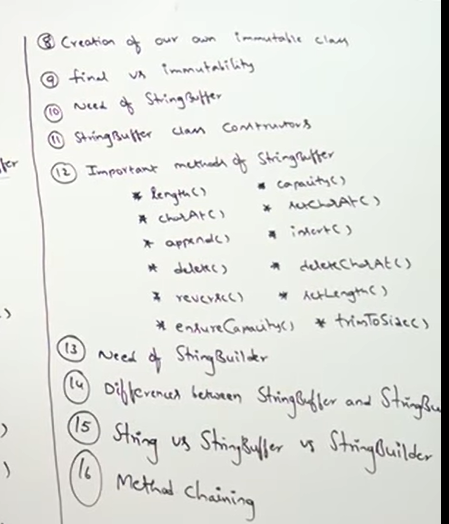 ⑧ Creation of our own immutable class
⑨ final vs immutability
⑩ Need of StringBuffer
⑪ StringBuffer class Constructors
⑫ Important methods of StringBuffer
* length() * capacity()
* charAt() * setCharAt()
* append() * insert()
* delete() * deleteCharAt()
* reverse() * setLength()
* ensureCapacity() * trimToSize()
⑬ Need of StringBuilder
⑭ Differences between StringBuffer and StringBu
⑮ String vs StringBuffer vs StringBuilder
⑯ Method chaining